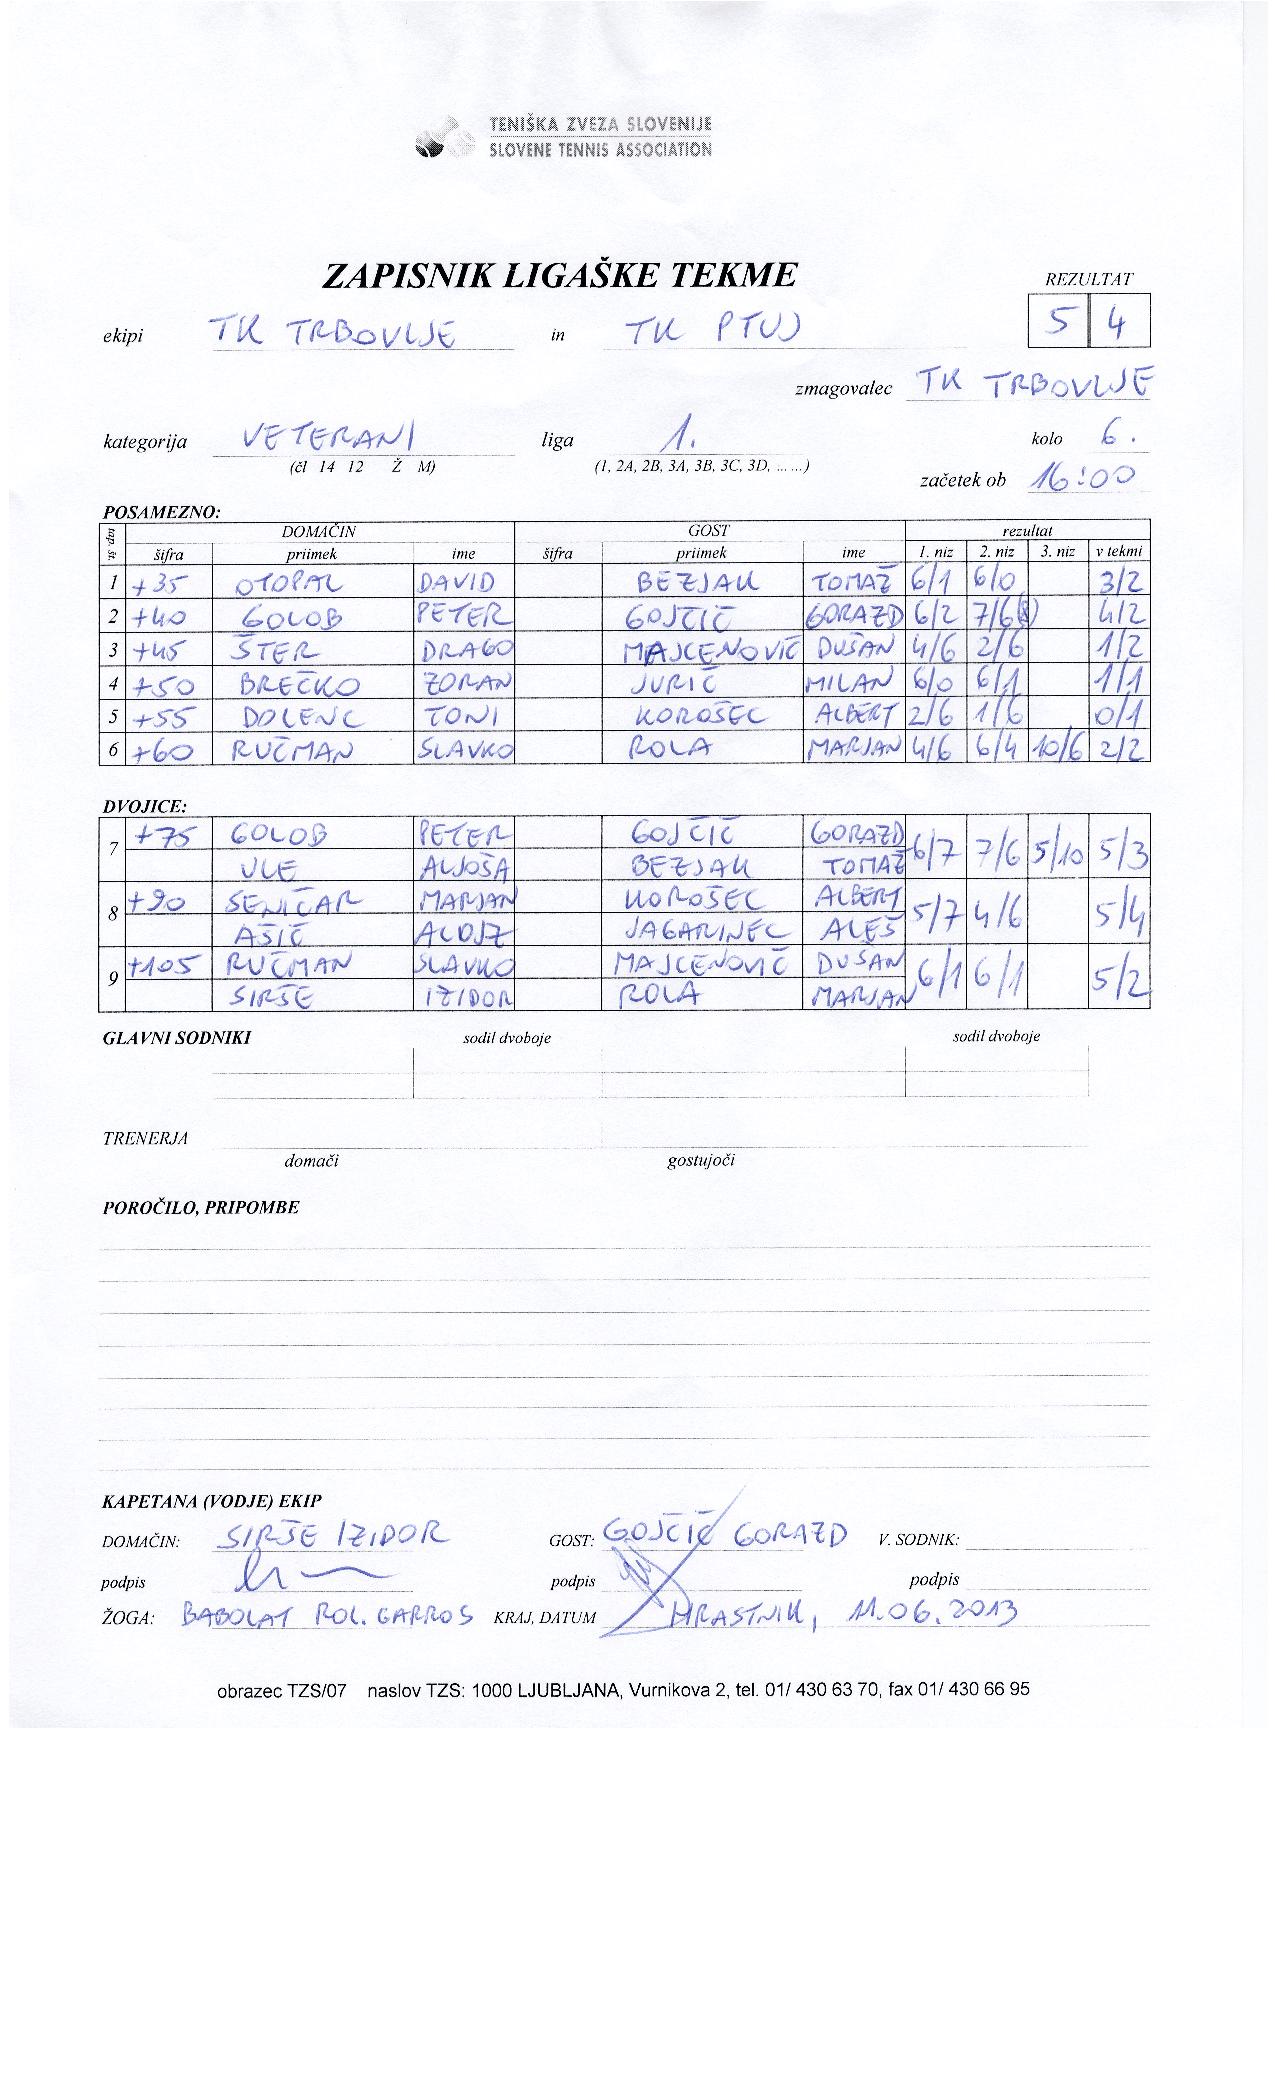 TENIŠKA ZVEZA SLOVENIJE
SLOVENE TENNIS ASSOCIATION
ZAPISNIK LIGAŠKE TEKME
REZULTAT
ekipi TK TRBOVLJE in TK PTUJ 5 4
zmagovalec TK TRBOVLJE
kategorija VETERANI liga 1. kolo 6.
(čl 14 12 Ž M) (1, 2A, 2B, 3A, 3B, 3C, 3D, ... ...)
začetek ob 16:00
POSAMEZNO:
zap. št DOMAČIN GOST rezultat
šifra priimek ime šifra priimek ime 1. niz 2. niz 3. niz v tekmi
1 +35 OTOPAL DAVID BEZJAK TOMAŽ 6/1 6/0 3/2
2 +40 GOLOB PETER GOJČIČ GORAZD 6/2 7/6(8) 4/2
3 +45 ŠTER DRAGO MAJCENOVIČ DUŠAN 4/6 2/6 1/2
4 +50 BREČKO ZORAN JURIČ MILAN 6/0 6/1 1/1
5 +55 DOLENC TONI KOROŠEC ALBERT 2/6 1/6 0/1
6 +60 RUČMAN SLAVKO ROLA MARJAN 4/6 6/4 10/6 2/2
DVOJICE:
7 +75 GOLOB PETER GOJČIČ GORAZD 6/7 7/6 5/10 5/3
ULE ALJOŠA BEZJAK TOMAŽ
8 +90 SENIČAR MARJAN KOROŠEC ALBERT 5/7 4/6 5/4
AŠIČ ALOJZ JAGARINEC ALEŠ
9 +105 RUČMAN SLAVKO MAJCENOVIČ DUŠAN 6/1 6/1 5/2
SIRŠE IZIDOR ROLA MARJAN
GLAVNI SODNIKI sodil dvoboje sodil dvoboje
TRENERJA
domači gostujoči
POROČILO, PRIPOMBE
KAPETANA (VODJE) EKIP
DOMAČIN: SIRŠE IZIDOR GOST: GOJČIČ GORAZD V. SODNIK:
podpis podpis podpis
ŽOGA: BABOLAT ROL. GARROS KRAJ, DATUM HRASTNIK, 11.06.2013
obrazec TZS/07 naslov TZS: 1000 LJUBLJANA, Vurnikova 2, tel. 01/ 430 63 70, fax 01/ 430 66 95